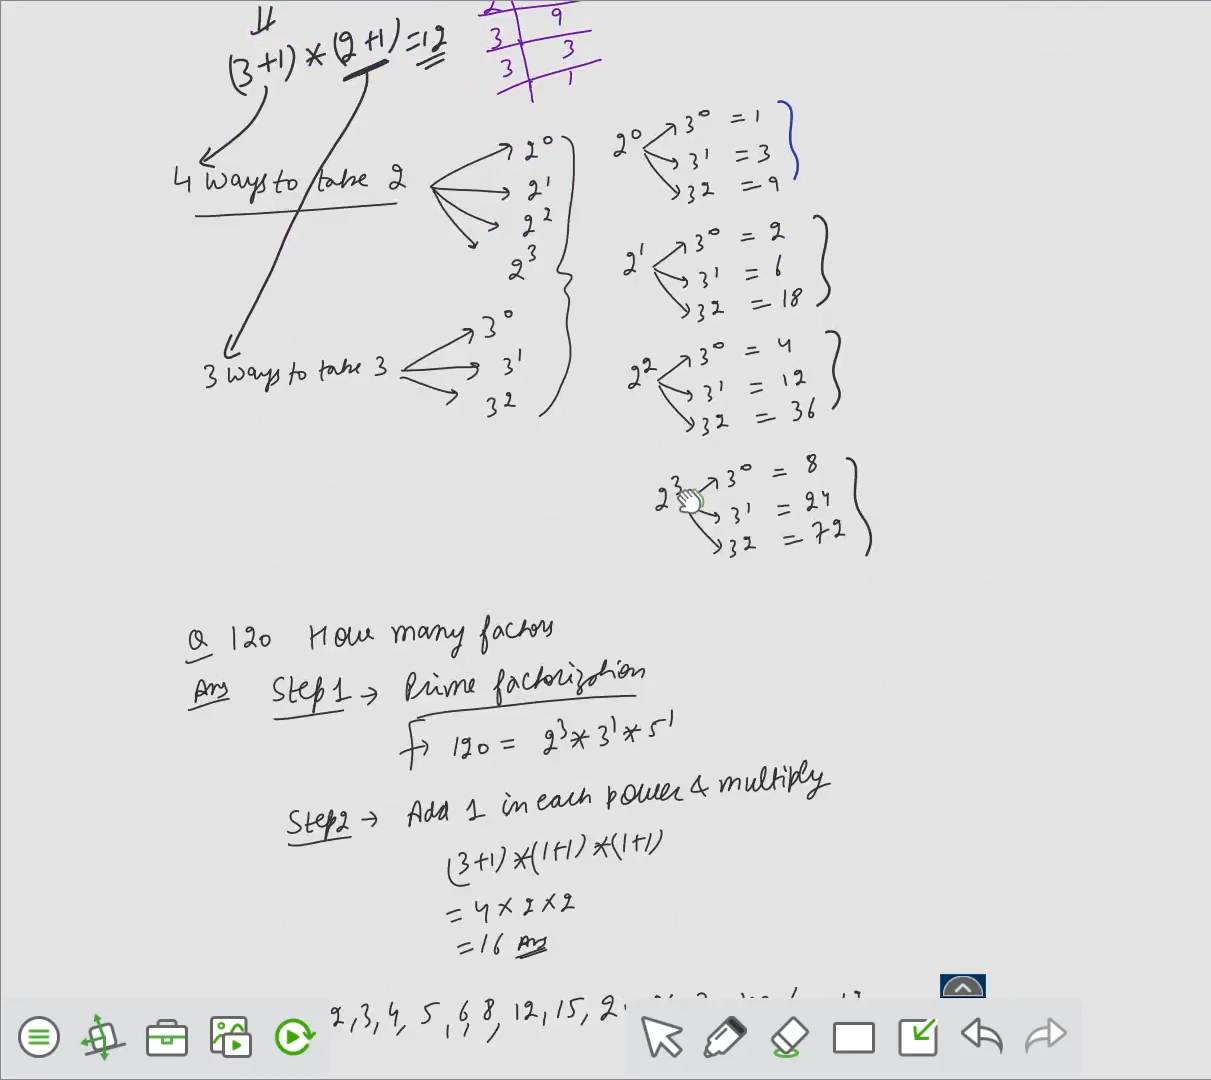 2 | 9
(3+1) * (2+1) = 12
3 | 3
3 | 1
4 ways to take 2
2^0
2^1
2^2
2^3
3 ways to take 3
3^0
3^1
3^2
2^0
3^0 = 1
3^1 = 3
3^2 = 9
2^1
3^0 = 2
3^1 = 6
3^2 = 18
2^2
3^0 = 4
3^1 = 12
3^2 = 36
2^3
3^0 = 8
3^1 = 24
3^2 = 72
Q 120 How many factors
Ans Step 1 → Prime factorization
→ 120 = 2^3 * 3^1 * 5^1
Step 2 → Add 1 in each power & multiply
(3+1) * (1+1) * (1+1)
= 4 × 2 × 2
= 16 Ans
2, 3, 4, 5, 6, 8, 12, 15,